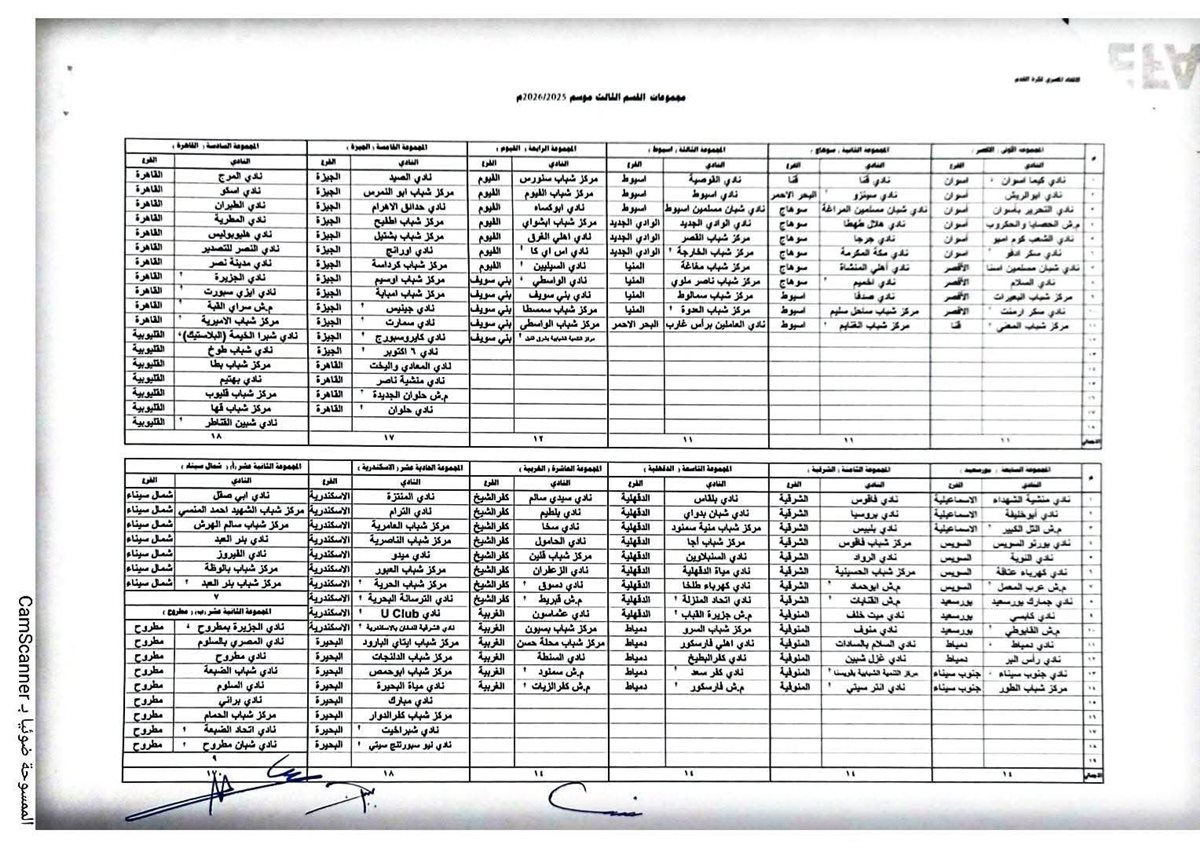 EFA
الاتحاد المصرى لكرة القدم
مجموعات القسم الثالث موسم 2026/2025م
م المجموعة الأولى ( الأقصر ) المجموعة الثانية ( سوهاج ) المجموعة الثالثة ( اسيوط ) المجموعة الرابعة ( الفيوم ) المجموعة الخامسة ( الجيزة ) المجموعة السادسة ( القاهرة )
النادي الفرع النادي الفرع النادي الفرع النادي الفرع النادي الفرع النادي الفرع
نادي كيما اسوان اسوان نادي قنا قنا نادي القوصية اسيوط مركز شباب سنورس الفيوم نادي الصيد الجيزة نادي المرج القاهرة
نادي ابوالريش أسوان نادي سينزو البحر الاحمر نادي اسيوط اسيوط مركز شباب الفيوم الفيوم مركز شباب ابو النمرس الجيزة نادي اسكو القاهرة
نادي التحرير بأسوان أسوان نادي شبان مسلمين المراغة سوهاج نادي شبان مسلمين اسيوط اسيوط نادي ابوكساه الفيوم نادي حدائق الاهرام الجيزة نادي الطيران القاهرة
م.ش الحصايا والحكروب أسوان نادي هلال طهطا سوهاج نادي الوادي الجديد الوادي الجديد مركز شباب ابشواي الفيوم مركز شباب اطفيح الجيزة نادي المطرية القاهرة
نادي الشعب كوم امبو أسوان نادي جرجا سوهاج مركز شباب القصر الوادي الجديد نادي اهلي الفرق الفيوم مركز شباب بشتيل الجيزة نادي هليوبوليس القاهرة
نادي سكر ادفو أسوان نادي مكة المكرمة سوهاج مركز شباب الخارجة الوادي الجديد نادي اس اي كا الفيوم نادي اورانج الجيزة نادي النصر للتصدير القاهرة
نادي شبان مسلمين اسنا الأقصر نادي أهلي المنشاة سوهاج مركز شباب مغاغة المنيا نادي السيليين الفيوم مركز شباب كرداسة الجيزة نادي مدينة نصر القاهرة
نادي السلام الأقصر نادي اخميم سوهاج مركز شباب ناصر ملوي المنيا نادي الواسطي بني سويف مركز شباب اوسيم الجيزة نادي الجزيرة القاهرة
مركز شباب البعيرات الأقصر نادي صدفا اسيوط مركز شباب سمالوط المنيا نادي بني سويف بني سويف مركز شباب امبابة الجيزة نادي ايزي سبورت القاهرة
نادي سكر ارمنت الأقصر مركز شباب ساحل سليم اسيوط مركز شباب العدوة المنيا مركز شباب سمسطا بني سويف نادي جينيس الجيزة م.ش سراي القبة القاهرة
مركز شباب المعني قنا مركز شباب الغنايم اسيوط نادي العاملين برأس غارب البحر الاحمر مركز شباب الواسطى بني سويف نادي سمارت الجيزة مركز شباب الاميرية القاهرة
مركز التنمية الشبابية بشرق النيل بني سويف نادي كايروسبورج الجيزة نادي شبرا الخيمة (البلاستيك) القليوبية
نادي ٦ اكتوبر الجيزة نادي شباب طوخ القليوبية
نادي المعادي واليخت القاهرة مركز شباب بطا القليوبية
نادي منشية ناصر القاهرة نادي بهتيم القليوبية
م.ش حلوان الجديدة القاهرة مركز شباب قليوب القليوبية
نادي حلوان القاهرة مركز شباب قها القليوبية
نادي شبين القناطر القليوبية
الاجمالي ١١ ١١ ١١ ١٢ ١٧ ١٨
م المجموعة السابعة ( بورسعيد ) المجموعة الثامنة ( الشرقية ) المجموعة التاسعة ( الدقهلية ) المجموعة العاشرة ( الغربية ) المجموعة الحادية عشر ( الاسكندرية ) المجموعة الثانية عشر (أ) ( شمال سيناء )
النادي الفرع النادي الفرع النادي الفرع النادي الفرع النادي الفرع النادي الفرع
نادي منشية الشهداء الاسماعيلية نادي فاقوس الشرقية نادي بلقاس الدقهلية نادي سيدي سالم كفرالشيخ نادي المنتزة الاسكندرية نادي ابي صقل شمال سيناء
نادي أبوخليفة الاسماعيلية نادي بروسيا الشرقية نادي شبان بدواي الدقهلية نادي بلطيم كفرالشيخ نادي الترام الاسكندرية مركز شباب الشهيد احمد المنسي شمال سيناء
م.ش التل الكبير الاسماعيلية نادي بلبيس الشرقية مركز شباب منية سمنود الدقهلية نادي سخا كفرالشيخ مركز شباب العامرية الاسكندرية مركز شباب سالم الهرش شمال سيناء
نادي بورتو السويس السويس مركز شباب فاقوس الشرقية مركز شباب أجا الدقهلية نادي الحامول كفرالشيخ مركز شباب الناصرية الاسكندرية نادي بئر العبد شمال سيناء
نادي النوبة السويس نادي الرواد الشرقية نادي السنبلاوين الدقهلية مركز شباب قلين كفرالشيخ نادي ميدو الاسكندرية نادي الفيروز شمال سيناء
نادي كهرباء عتاقة السويس مركز شباب الحسينية الشرقية نادي مياة الدقهلية الدقهلية نادي الزعفران كفرالشيخ مركز شباب العبور الاسكندرية مركز شباب بالوظة شمال سيناء
م.ش عرب المعمل السويس م.ش ابوحماد الشرقية نادي كهرباء طلخا الدقهلية نادي دسوق كفرالشيخ مركز شباب الحرية الاسكندرية مركز شباب بئر العبد شمال سيناء
نادي جمارك بورسعيد بورسعيد م.ش الكتابات الشرقية نادي اتحاد المنزلة الدقهلية م.ش قبريط كفرالشيخ نادي الترسانة البحرية الاسكندرية ٧
نادي كابسي بورسعيد نادي ميت خلف المنوفية م.ش جزيرة القباب الدقهلية نادي عشاسون الغربية نادي U Club الاسكندرية المجموعة الثانية عشر (ب) ( مطروح )
م.ش القابوطي بورسعيد نادي منوف المنوفية مركز شباب السرو دمياط مركز شباب بسيون الغربية نادي الشرقية للدخان بالاسكندرية الاسكندرية نادي الجزيرة بمطروح مطروح
نادي دمياط دمياط نادي السلام بالسادات المنوفية نادي اهلي فارسكور دمياط مركز شباب محلة حسن الغربية مركز شباب ايتاي البارود البحيرة نادي المصري بالسلوم مطروح
نادي رأس البر دمياط نادي غزل شبين المنوفية نادي كفرالبطيخ دمياط نادي السنطة الغربية مركز شباب الدلنجات البحيرة نادي مطروح مطروح
نادي جنوب سيناء جنوب سيناء مركز التنمية الشبابية بالبرمسا المنوفية نادي كفر سعد دمياط م.ش سمنود الغربية مركز شباب ابوحمص البحيرة مركز شباب الضبعة مطروح
مركز شباب الطور جنوب سيناء نادي انتر سيتي المنوفية م.ش فارسكور دمياط م.ش كفرالزيات الغربية نادي مياة البحيرة البحيرة نادي السلوم مطروح
نادي مبارك البحيرة نادي براني مطروح
مركز شباب كفرالدوار البحيرة مركز شباب الحمام مطروح
نادي شبراخيت البحيرة نادي اتحاد الضبعة مطروح
نادي نيو سبورتنج سيتي البحيرة نادي شبان مطروح مطروح
٩
الاجمالي ١٤ ١٤ ١٤ ١٤ ١٨
الممسوحة ضوئيا بـ CamScanner